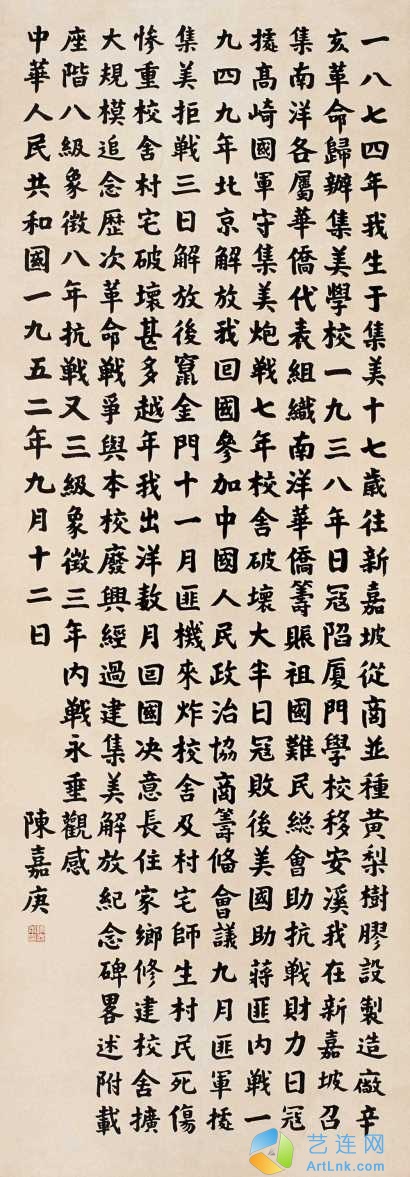 一八七四年我生于集美十七歲往新嘉坡從商並種黃梨樹膠設製造廠辛
亥革命歸辦集美學校一九三八年日冠陷厦門學校移安溪我在新嘉坡召
集南洋各屬華僑代表組織南洋華僑籌賑祖國難民総會助抗戰財力日冠
據高崎國軍守集美炮戰七年校舍破壞大半日冠敗後美國助蔣匪內戰一
九四九年北京解放我回國參加中國人民政治協商籌俻會議九月匪軍據
集美拒戰三日解放後竄金門十一月匪機來炸校舍及村宅師生村民死傷
慘重校舍村宅破壞甚多越年我出洋数月回國决意長住家鄉修建校舍擴
大規模追念歷次革命戰爭與本校廢興經過建集美解放紀念碑畧述附載
座階八級象徵八年抗戰又三級象徵三年內戰永垂觀感
中華人民共和國一九五二年九月十二日 陳嘉庚
艺连网
ArtLnk.com